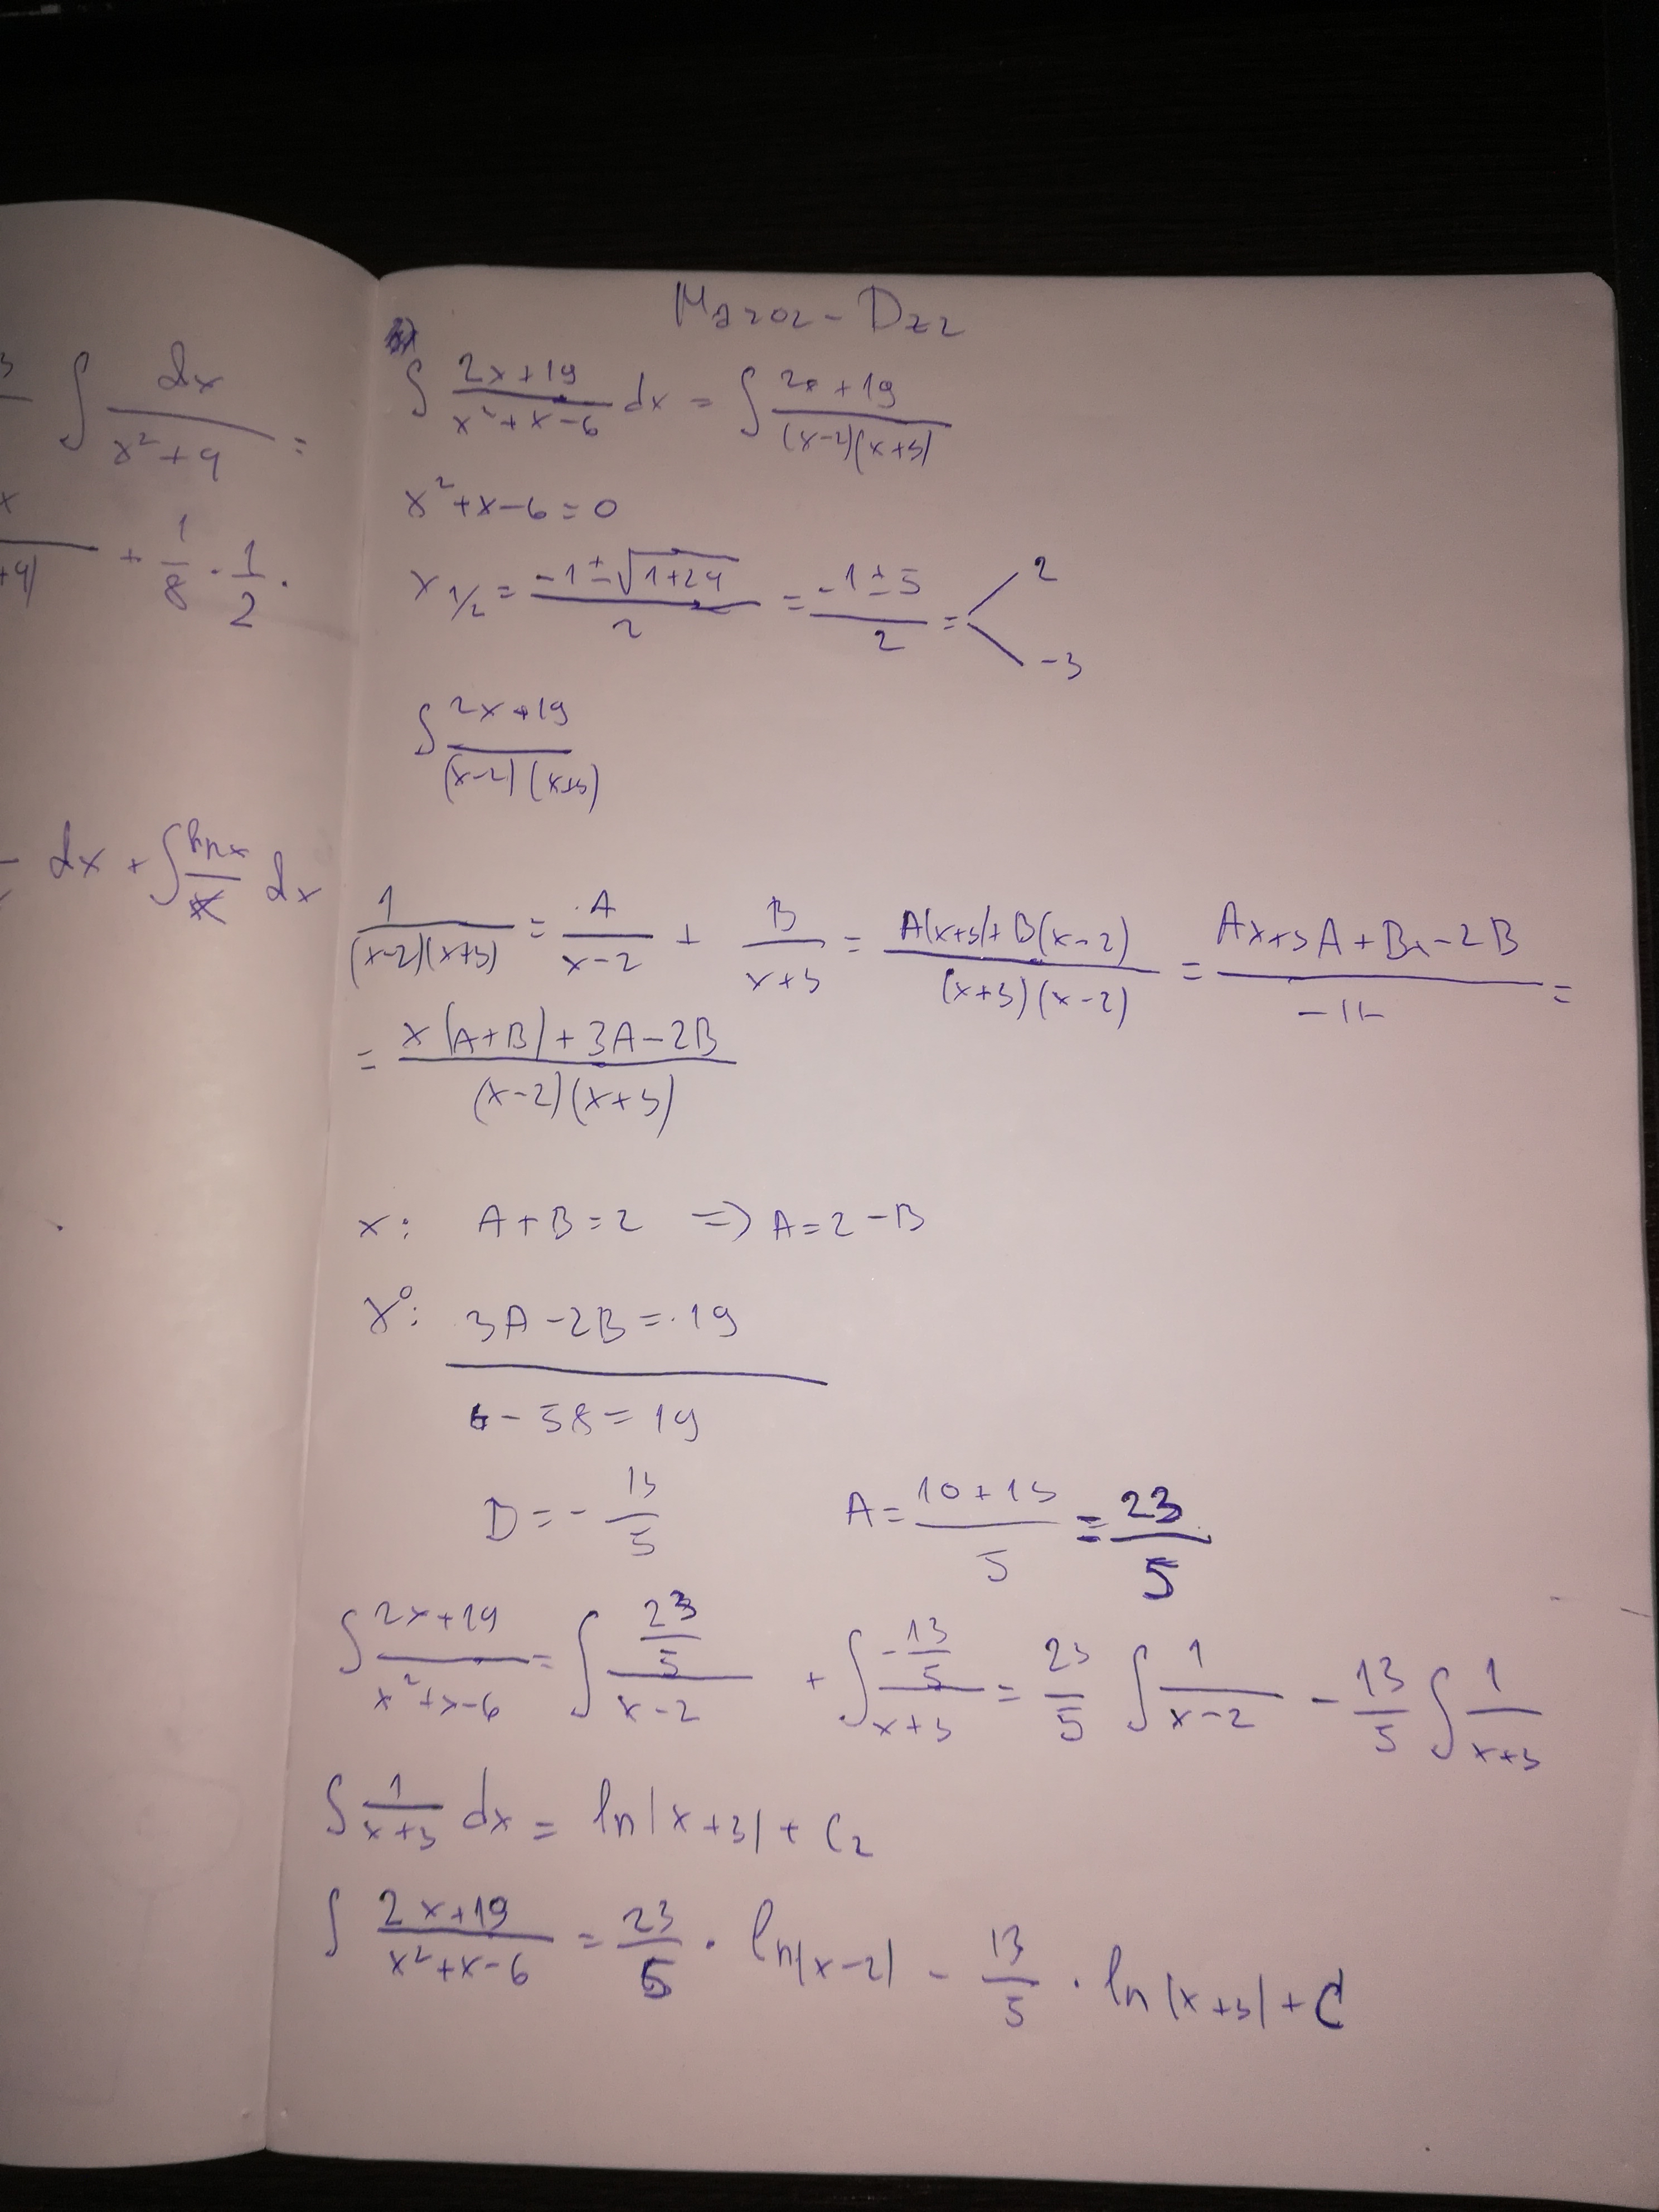 ∫ dx / (x² + 9) =
+ 1/8 · 1/2 ·
dx + ∫ lnx/x dx
Ma202 - Dz2
∫ (2x+19)/(x²+x-6) dx = ∫ (2x+19)/((x-2)(x+3))
x²+x-6=0
x 1/2 = (-1±√(1+24))/2 = (-1±5)/2 = < 2 -3
∫ (2x+19)/((x-2)(x+3))
1/((x-2)(x+3)) = A/(x-2) + B/(x+3) = (A(x+3)+B(x-2))/((x+3)(x-2)) = (Ax+3A+Bx-2B)/(-11-) =
= (x(A+B)+3A-2B)/((x-2)(x+3))
x: A+B=2 => A=2-B
x⁰: 3A-2B=19
6-5B=19
B=-13/5 A=(10+13)/5=23/5
∫ (2x+19)/(x²+x-6) = ∫ (23/5)/(x-2) + ∫ (-13/5)/(x+3) = 23/5 ∫ 1/(x-2) - 13/5 ∫ 1/(x+3)
∫ 1/(x+3) dx = ln|x+3| + C₂
∫ (2x+19)/(x²+x-6) = 23/5 · ln|x-2| - 13/5 · ln|x+3| + C